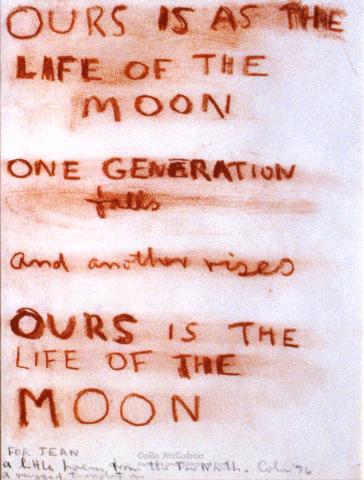 OURS IS AS THE
LIFE OF THE
MOON
ONE GENERATION
falls
and another rises
OURS IS THE
LIFE OF THE
MOON
FOR JEAN
a little poem from the Far North. Colin '76.
a revised translation
Colin McCahon